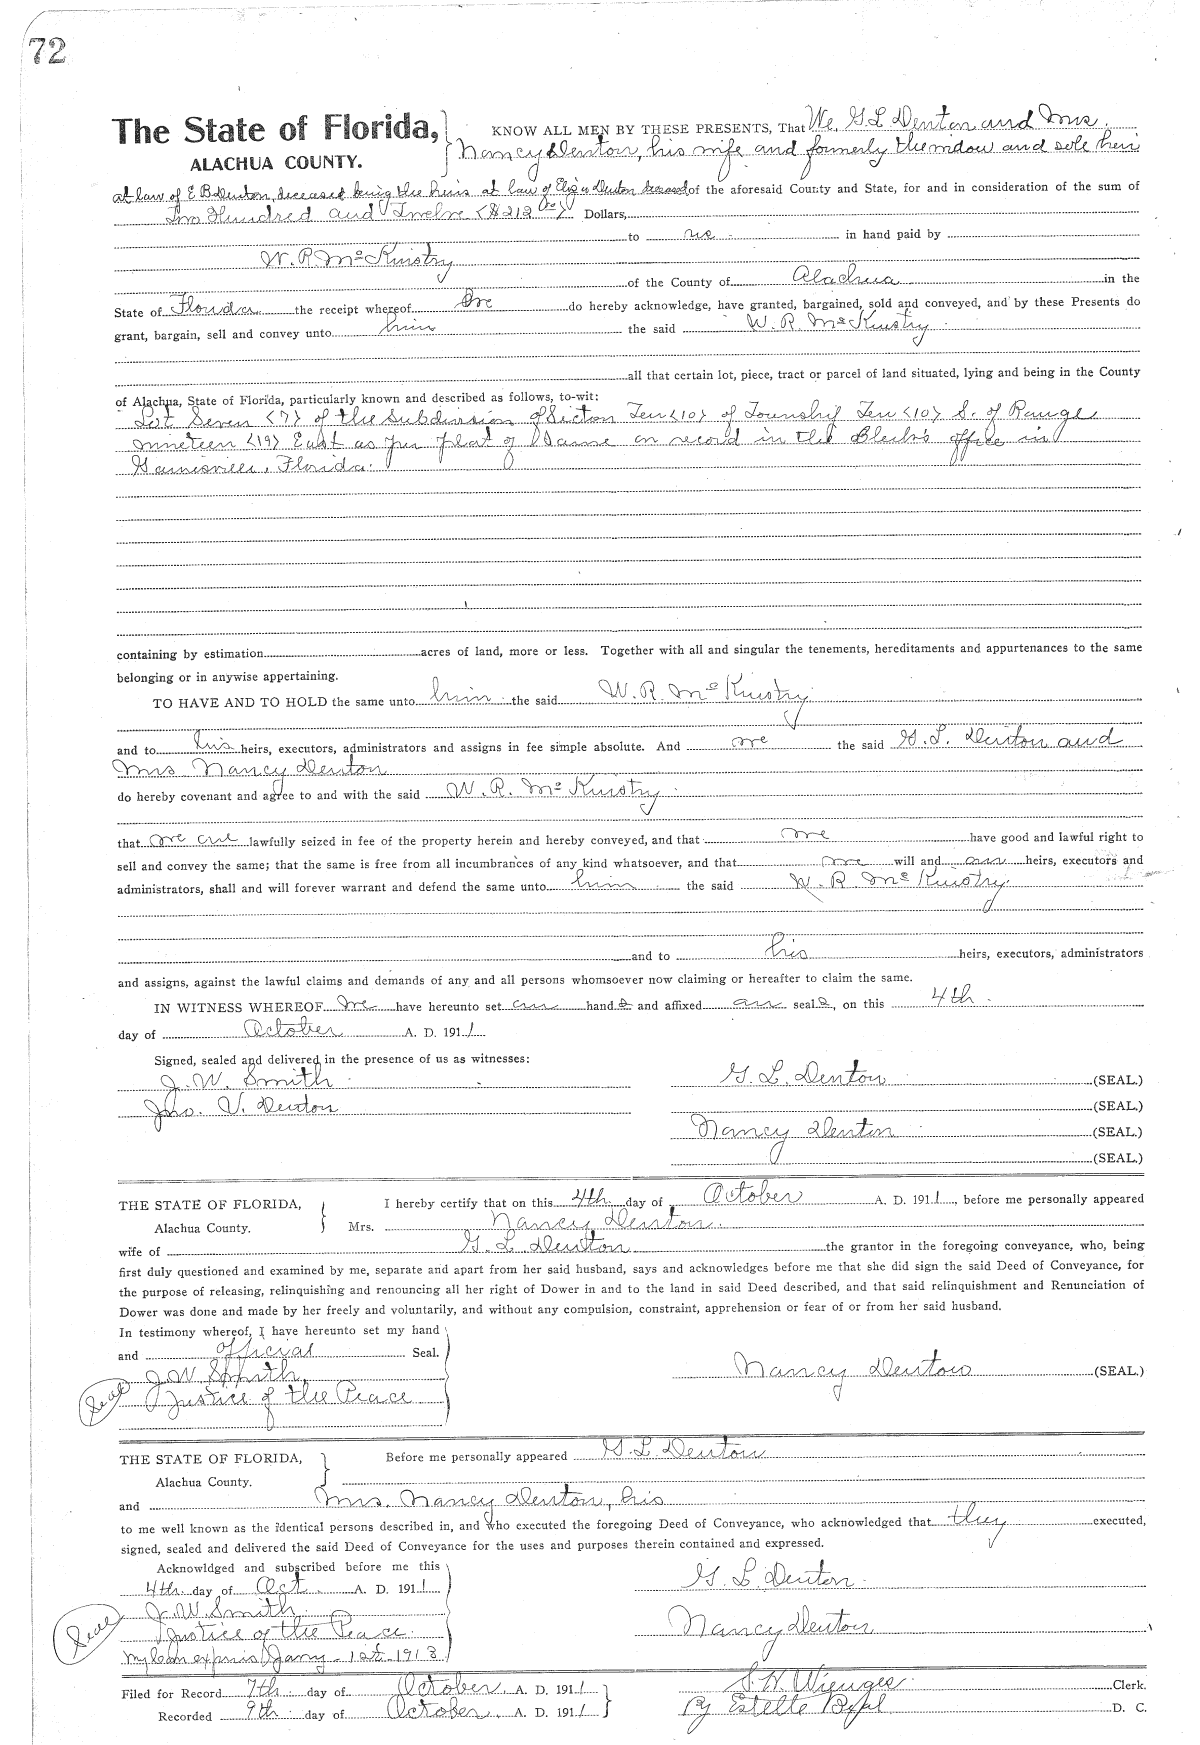 72
The State of Florida, KNOW ALL MEN BY THESE PRESENTS, That We, G L Denton and Mrs.
ALACHUA COUNTY. Nancy Denton, his wife and formerly the widow and sole heir
at law of E B Denton, deceased being the heirs at law of Denton deceased of the aforesaid County and State, for and in consideration of the sum of
Two Hundred and Twelve ($212 00) Dollars,
to us in hand paid by
W. R. McKinstry
of the County of Alachua in the
State of Florida the receipt whereof we do hereby acknowledge, have granted, bargained, sold and conveyed, and by these Presents do
grant, bargain, sell and convey unto him the said W. R. McKinstry
all that certain lot, piece, tract or parcel of land situated, lying and being in the County
of Alachua, State of Florida, particularly known and described as follows, to-wit:
Lot Seven (7) of the Subdivision of Section Ten (10) of Township Ten (10) S. of Range
nineteen (19) East as per plat of same on record in the Clerk's office in
Gainesville, Florida.
containing by estimation acres of land, more or less. Together with all and singular the tenements, hereditaments and appurtenances to the same
belonging or in anywise appertaining.
TO HAVE AND TO HOLD the same unto him the said W. R. McKinstry
and to his heirs, executors, administrators and assigns in fee simple absolute. And we the said G. L. Denton and
Mrs Nancy Denton
do hereby covenant and agree to and with the said W. R. McKinstry
that we are lawfully seized in fee of the property herein and hereby conveyed, and that we have good and lawful right to
sell and convey the same; that the same is free from all incumbrances of any kind whatsoever, and that we will and our heirs, executors and
administrators, shall and will forever warrant and defend the same unto him the said W. R. McKinstry
and to his heirs, executors, administrators
and assigns, against the lawful claims and demands of any and all persons whomsoever now claiming or hereafter to claim the same.
IN WITNESS WHEREOF we have hereunto set our hands and affixed our seals, on this 4th
day of October A. D. 1911
Signed, sealed and delivered in the presence of us as witnesses:
J. W. Smith G. L. Denton (SEAL.)
Jno. V. Denton (SEAL.)
Nancy Denton (SEAL.)
(SEAL.)
THE STATE OF FLORIDA, I hereby certify that on this 4th day of October A. D. 1911, before me personally appeared
Alachua County. Mrs. Nancy Denton
wife of G. L Denton the grantor in the foregoing conveyance, who, being
first duly questioned and examined by me, separate and apart from her said husband, says and acknowledges before me that she did sign the said Deed of Conveyance, for
the purpose of releasing, relinquishing and renouncing all her right of Dower in and to the land in said Deed described, and that said relinquishment and Renunciation of
Dower was done and made by her freely and voluntarily, and without any compulsion, constraint, apprehension or fear of or from her said husband.
In testimony whereof, I have hereunto set my hand
and official Seal.
J. W. Smith, Nancy Denton (SEAL.)
Seal Justice of the Peace
THE STATE OF FLORIDA, Before me personally appeared G. L. Denton
Alachua County.
and Mrs. Nancy Denton, his
to me well known as the identical persons described in, and who executed the foregoing Deed of Conveyance, who acknowledged that they executed,
signed, sealed and delivered the said Deed of Conveyance for the uses and purposes therein contained and expressed.
Acknowldged and subscribed before me this
4th day of Oct. A. D. 1911 G. L. Denton
Seal J. W. Smith
Justice of the Peace Nancy Denton
My Com expires Jany. 1st 1913
Filed for Record 7th day of October A. D. 1911 S. H. Wienges Clerk.
Recorded 9th day of October A. D. 1911 By Estelle D. C.